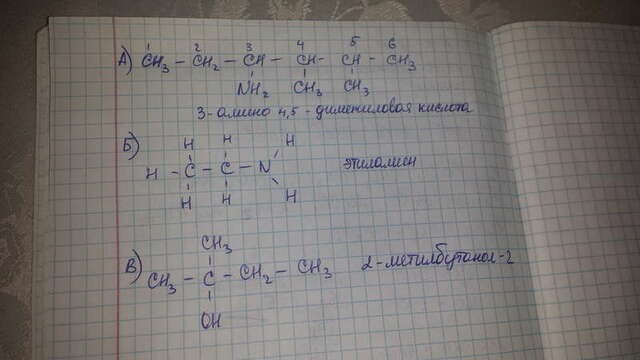 1 2 3 4 5 6
А) CH3 - CH2 - CH - CH - CH - CH3
NH2 CH3 CH3
3-амино 4,5-диметиловая кислота
Б) H H H
H - C - C - N этиламиен
H H H
CH3
В) CH3 - C - CH2 - CH3 2-метилбутанол-2
OH